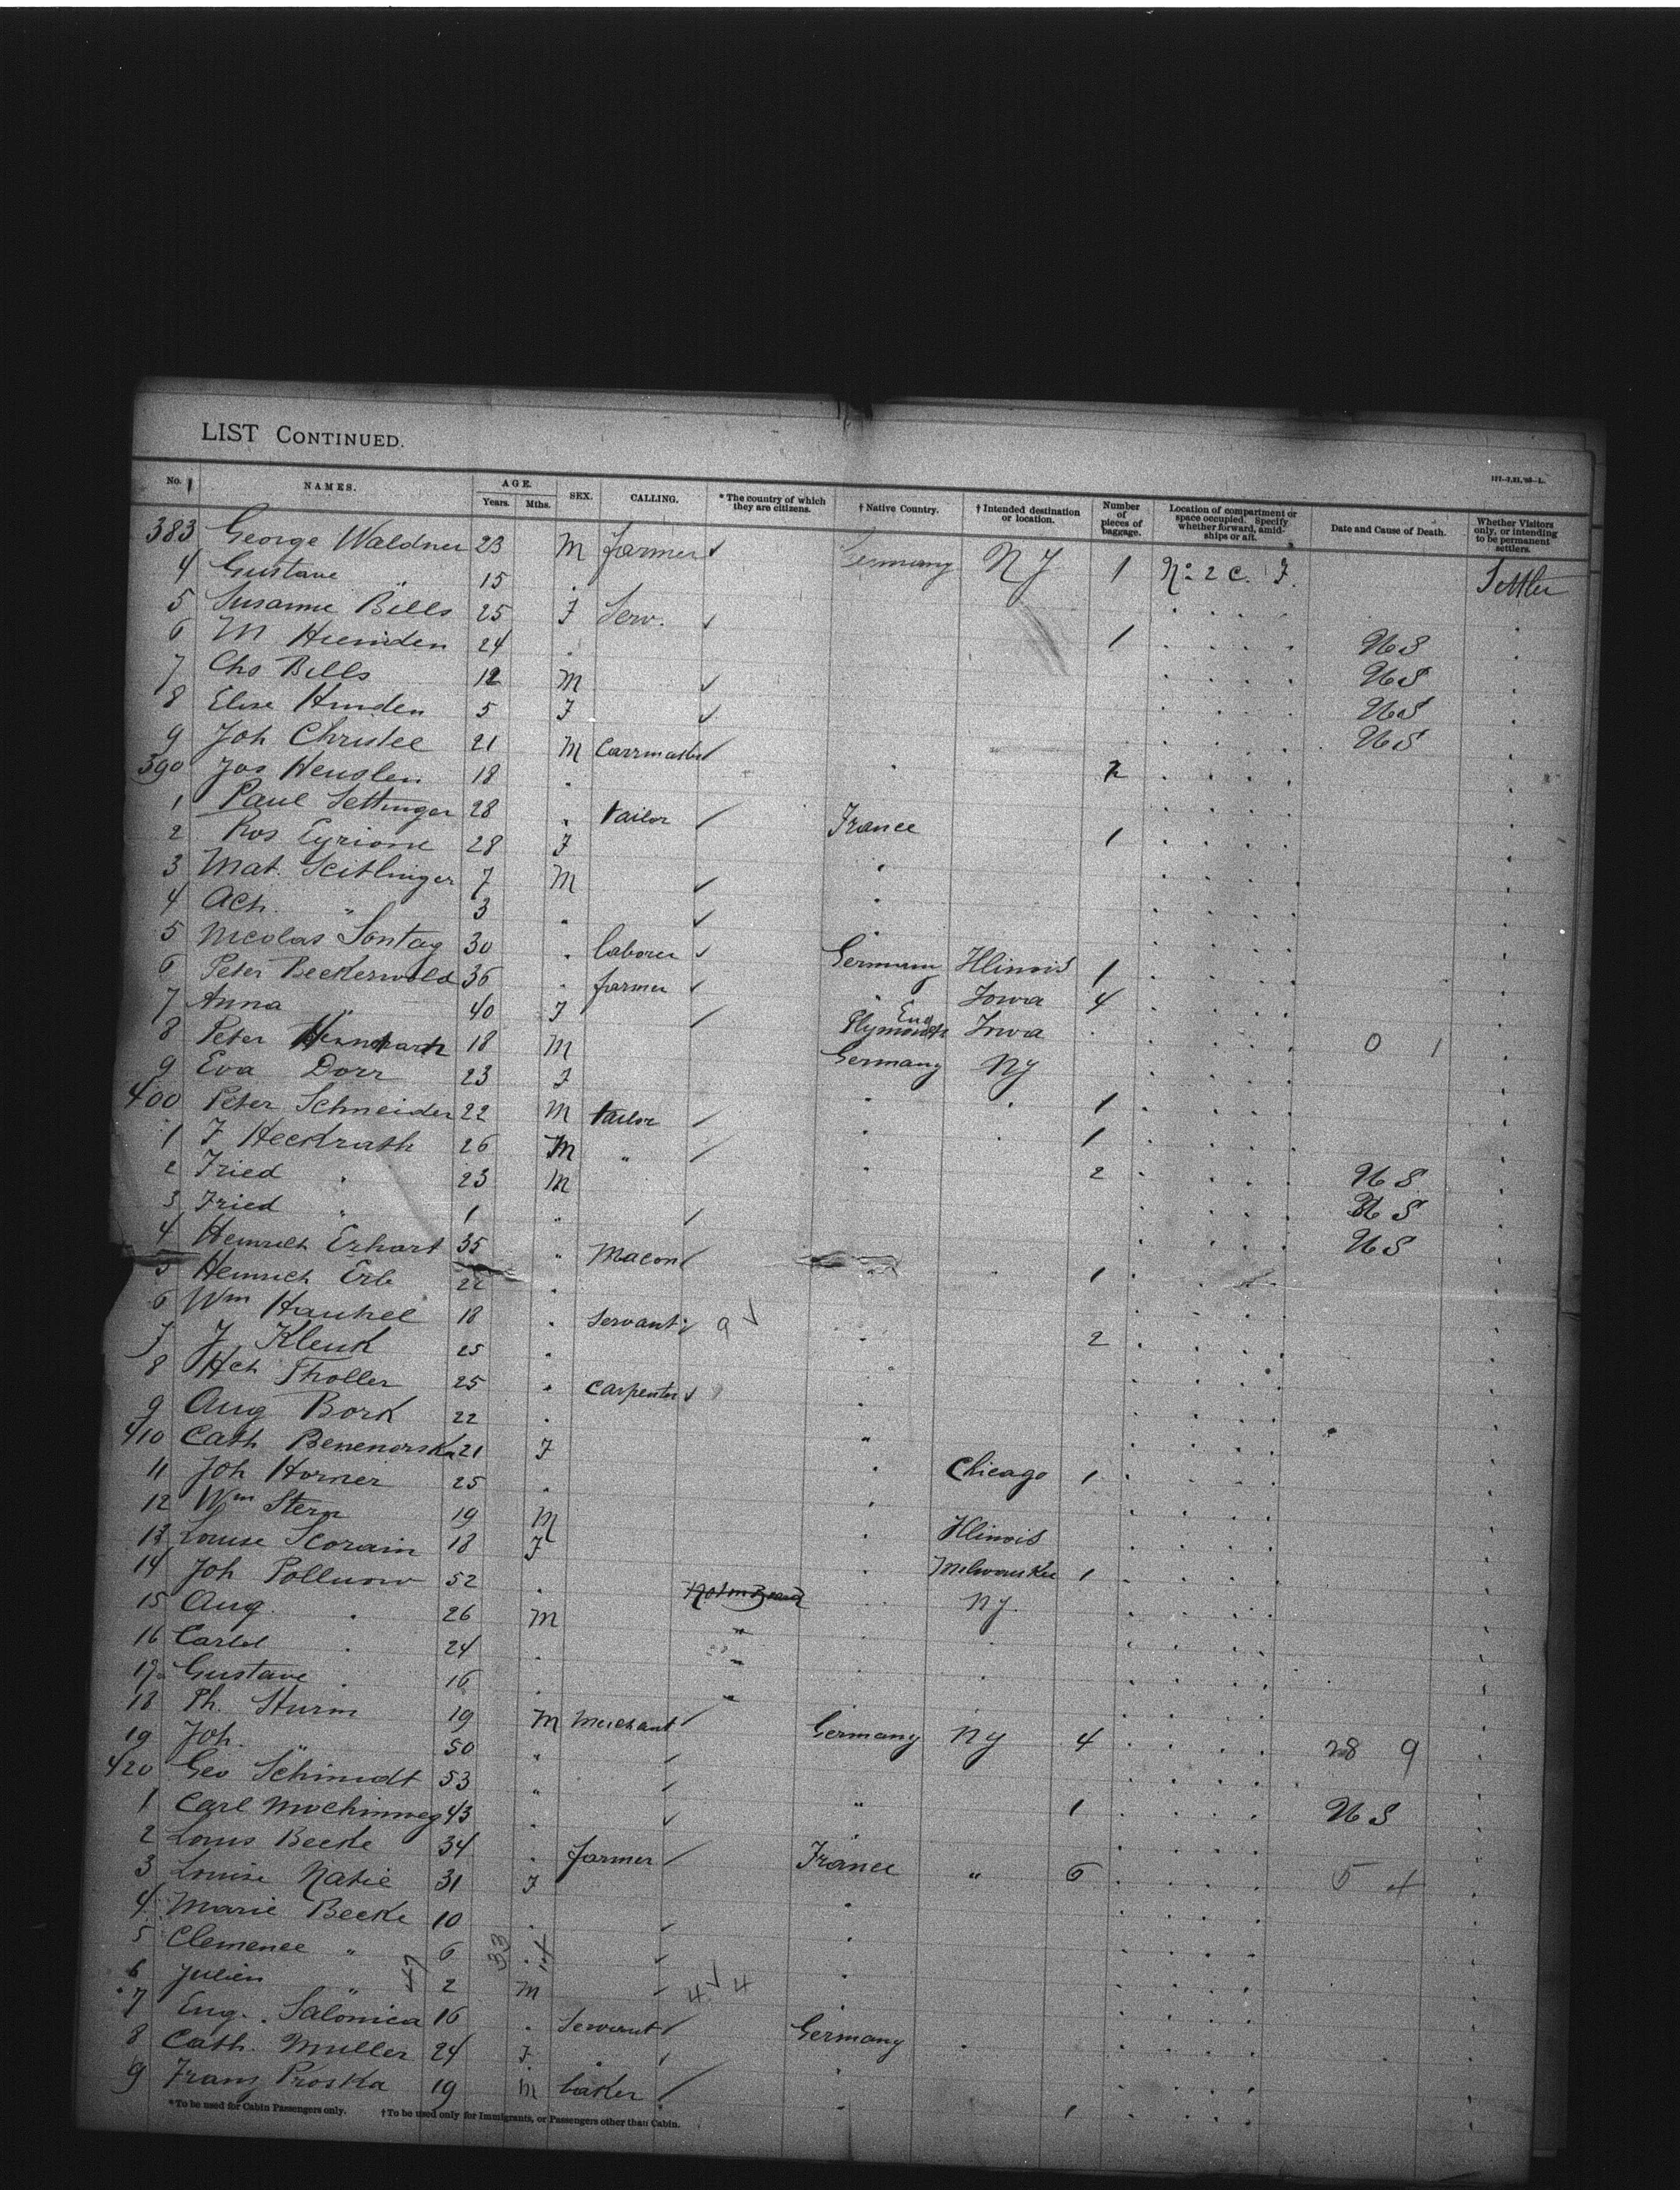 LIST CONTINUED.
111-7,21,'93-L.
No. NAMES. AGE. Years. Mths. SEX. CALLING. * The country of which they are citizens. † Native Country. † Intended destination or location. Number of pieces of baggage. Location of compartment or space occupied. Specify whether forward, amidships or aft. Date and Cause of Death. Whether Visitors only, or intending to be permanent settlers.
383 George Waldner 23 M farmer Germany NY 1 No 2 C. F. Settler
4 Gustave " 15
5 Susanne Bells 25 F Serv. 1 US
6 M 24 US
7 Chs Bells 12 M US
8 Elise Hinden 5 F US
9 Joh Christel 21 M
390 Jos Henslen 18 2
1 Paul Settinger 28 tailor France
2 Ros Eyrione 28 F 1
3 Mat. Seitlinger 7 M
4 Ach. " 3
5 Nicolas Sontag 30 laborer Germany Illinois 1
6 Peter Beckerwold 36 farmer " Iowa 4
7 Anna " 40 F Plymouth Eng Iowa
8 Peter 18 M Germany NY 0 1
9 Eva Dorr 23 F
400 Peter Schneider 22 M tailor 1
1 F Heckrath 26 M " 1
2 Fried " 23 M 2 US
3 Fried " 1 " US
4 Heinrich Erhart 35 " Macon US
5 Heinrich Erb 22 1
6 Wm Hankel 18 Servant 9
7 J Klenk 25 2
8 Hch Tholler 25 Carpenter
9 Aug Bork 22
410 Cath Benenorska 21 F
11 Joh Horner 25 Chicago 1
12 Wm Stern 19 M
13 Louise Scorain 18 F Illinois
14 Joh Pollnow 52 Not on Board Milwaukee 1
15 Aug. " 26 M " NY.
16 Carl " 24 "
17 Gustave " 16 "
18 Ph. Sturm 19 M Merchant Germany NY 4 28 9
19 Joh. " 50 "
420 Geo Schmidt 53 "
1 Carl 43 " 1 US
2 Louis Becke 34 farmer France
3 Louise Natie 31 F " 6 5 4
4 Marie Becke 10
5 Clemence " 6 33 14
6 Julien " 47 2 M 4 4
7 Eug. Salonica 16 Servant Germany
8 Cath. Muller 24 F
9 Franz Proska 19 M baker 1
*To be used for Cabin Passengers only. †To be used only for Immigrants, or Passengers other than Cabin.